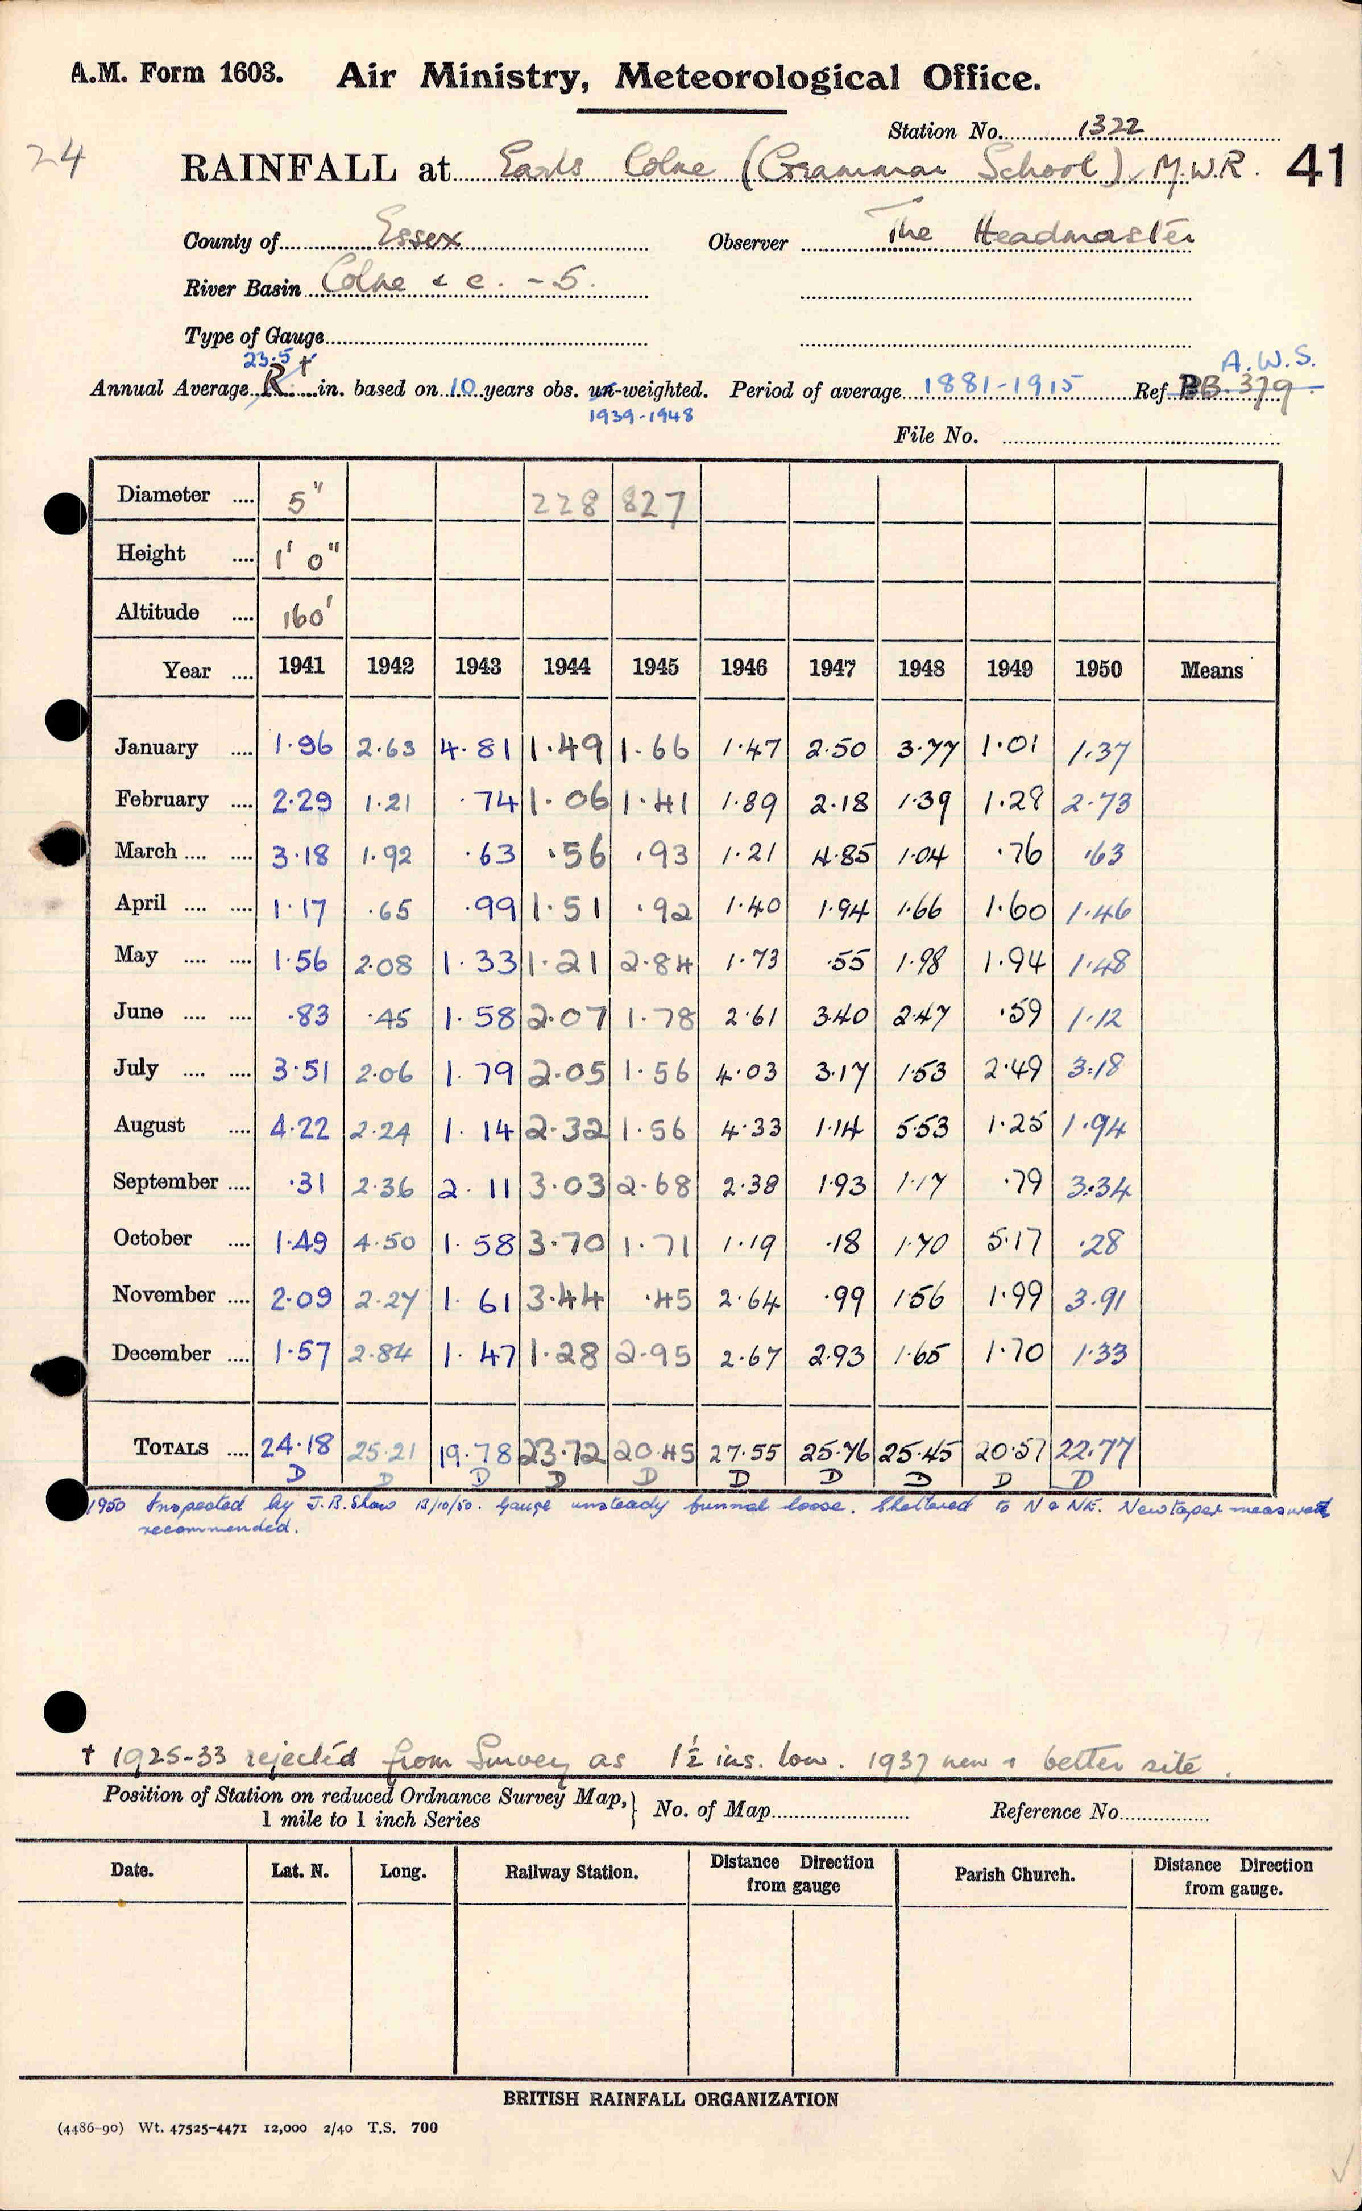 A.M. Form 1603. Air Ministry, Meteorological Office.
Station No. 1322
24
RAINFALL at Earls Colne (Grammar School) M.W.R. 41
County of Essex Observer The Headmaster
River Basin Colne & c. - 5.
Type of Gauge
23.5 † A.W.S.
Annual Average R in. based on 10 years obs. un-weighted. Period of average 1881-1915 Ref. BB. 379
1939-1948
File No.
Diameter .... 5" 228 827
Height .... 1' 0"
Altitude .... 160'
Year .... 1941 1942 1943 1944 1945 1946 1947 1948 1949 1950 Means
January .... 1.96 2.63 4.81 1.49 1.66 1.47 2.50 3.77 1.01 1.37
February .... 2.29 1.21 .74 1.06 1.41 1.89 2.18 1.39 1.28 2.73
March .... .... 3.18 1.92 .63 .56 .93 1.21 4.85 1.04 .76 .63
April .... .... 1.17 .65 .99 1.51 .92 1.40 1.94 1.66 1.60 1.46
May .... .... 1.56 2.08 1.33 1.21 2.84 1.73 .55 1.98 1.94 1.48
June .... .... .83 .45 1.58 2.07 1.78 2.61 3.40 2.47 .59 1.12
July .... .... 3.51 2.06 1.79 2.05 1.56 4.03 3.17 1.53 2.49 3.18
August .... 4.22 2.24 1.14 2.32 1.56 4.33 1.14 5.53 1.25 1.94
September .... .31 2.36 2.11 3.03 2.68 2.38 1.93 1.17 .79 3.34
October .... 1.49 4.50 1.58 3.70 1.71 1.19 .18 1.70 5.17 .28
November .... 2.09 2.27 1.61 3.44 .45 2.64 .99 1.56 1.99 3.91
December .... 1.57 2.84 1.47 1.28 2.95 2.67 2.93 1.65 1.70 1.33
TOTALS .... 24.18 25.21 19.78 23.72 20.45 27.55 25.76 25.45 20.57 22.77
D D D D D D D D D D
1950 Inspected by J.B. Shaw 13/10/50. Gauge unsteady funnel loose. Sheltered to N & NE. New taper measure recommended.
† 1925-33 rejected from Survey as 1½ ins. low. 1937 new & better site.
Position of Station on reduced Ordnance Survey Map, } No. of Map Reference No.
1 mile to 1 inch Series
Date. Lat. N. Long. Railway Station. Distance Direction from gauge Parish Church. Distance Direction from gauge.
BRITISH RAINFALL ORGANIZATION
(4486-90) Wt. 47525-4471 12,000 2/40 T.S. 700